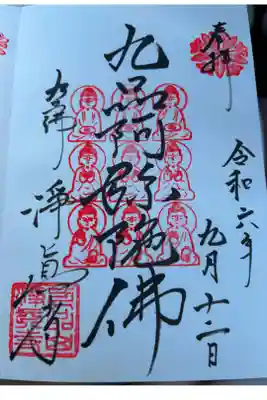 奉拝
令和六年
九月十二日
九品阿弥陀佛
九品佛
浄真寺